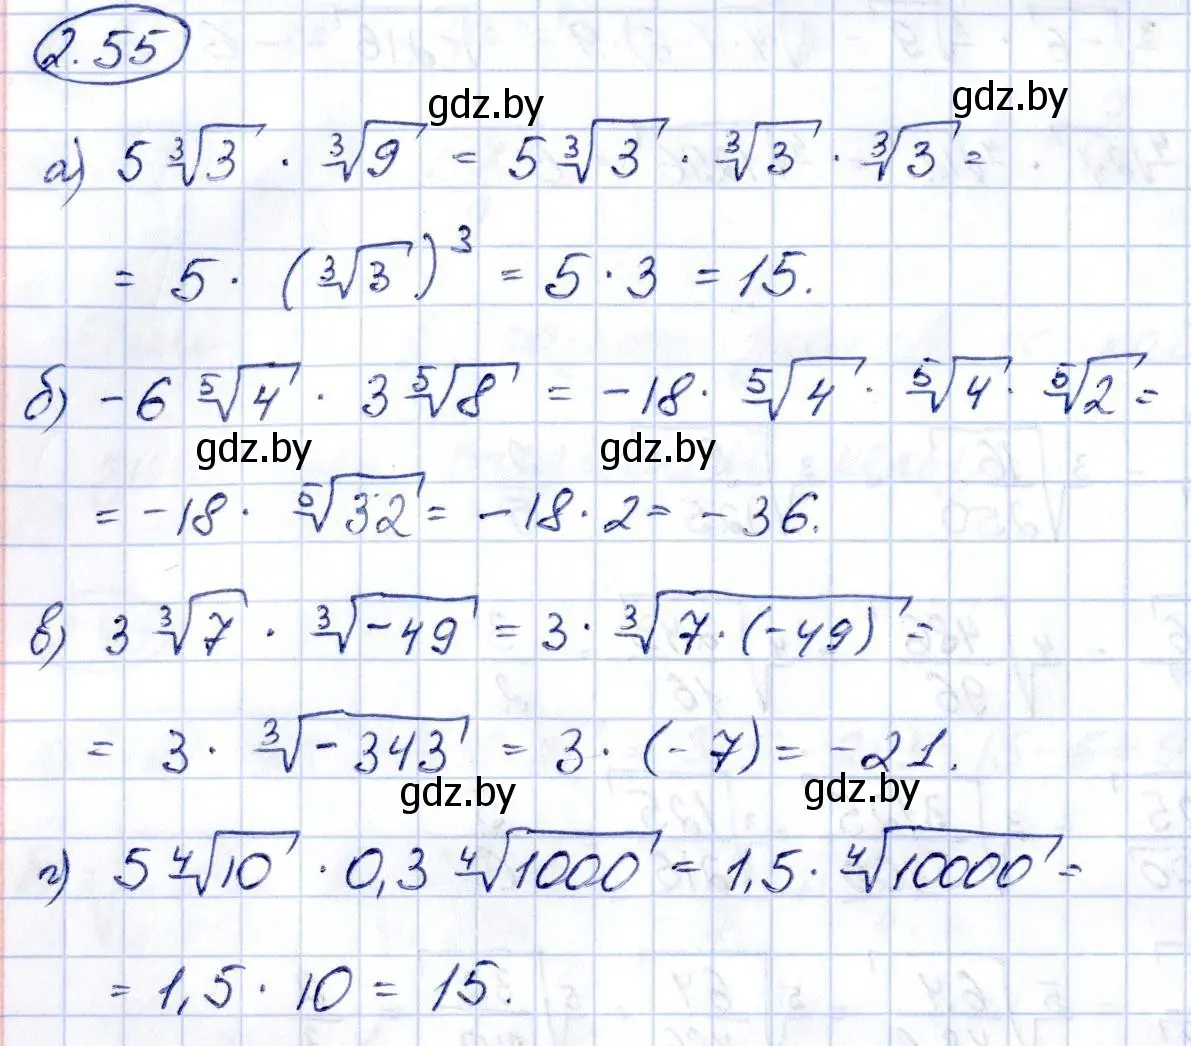 2.55
gdz.by gdz.by
а) 5∛3 · ∛9 = 5∛3 · ∛3 · ∛3 =
= 5 · (∛3)³ = 5 · 3 = 15.
б) -6 ⁵√4 · 3 ⁵√8 = -18 · ⁵√4 · ⁵√4 · ⁵√2 =
gdz.by gdz.by
= -18 · ⁵√32 = -18 · 2 = -36.
в) 3 ∛7 · ∛-49 = 3 · ∛7 · (-49) =
= 3 · ∛-343 = 3 · (-7) = -21.
gdz.by gdz.by
г) 5 ∜10 · 0,3 ∜1000 = 1,5 · ∜10000 =
= 1,5 · 10 = 15.